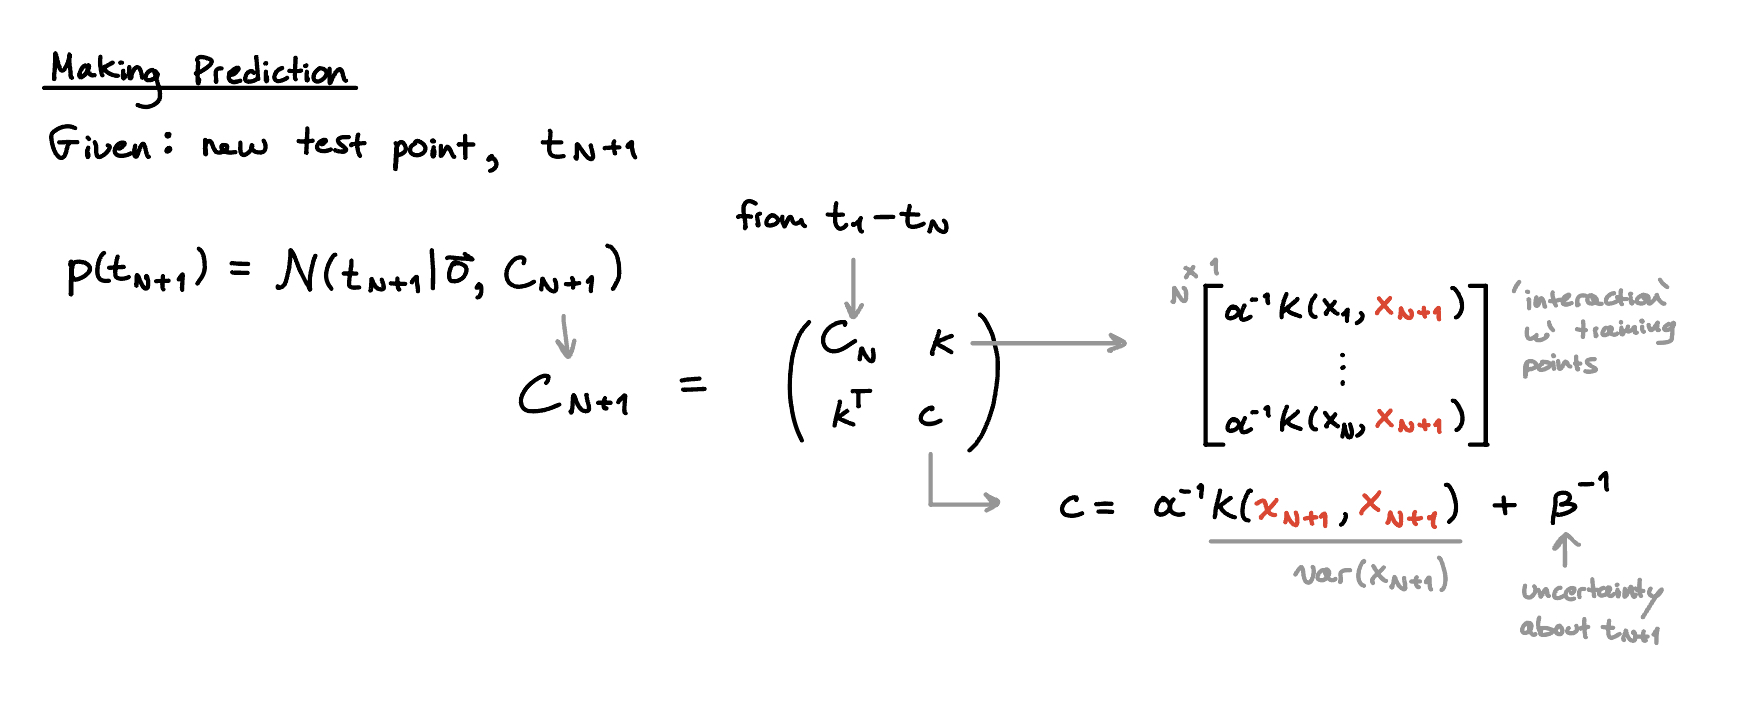 Making Prediction
Given: new test point, t_{N+1}
from t_1 - t_N
p(t_{N+1}) = N(t_{N+1} | \vec{0}, C_{N+1})
C_{N+1} = ( C_N k
k^T c )
N x 1
[ α^{-1} k(x_1, x_{N+1})
⋮
α^{-1} k(x_N, x_{N+1}) ]
'interaction'
w/ training
points
c = α^{-1} k(x_{N+1}, x_{N+1}) + β^{-1}
var(x_{N+1})
uncertainty
about t_{N+1}